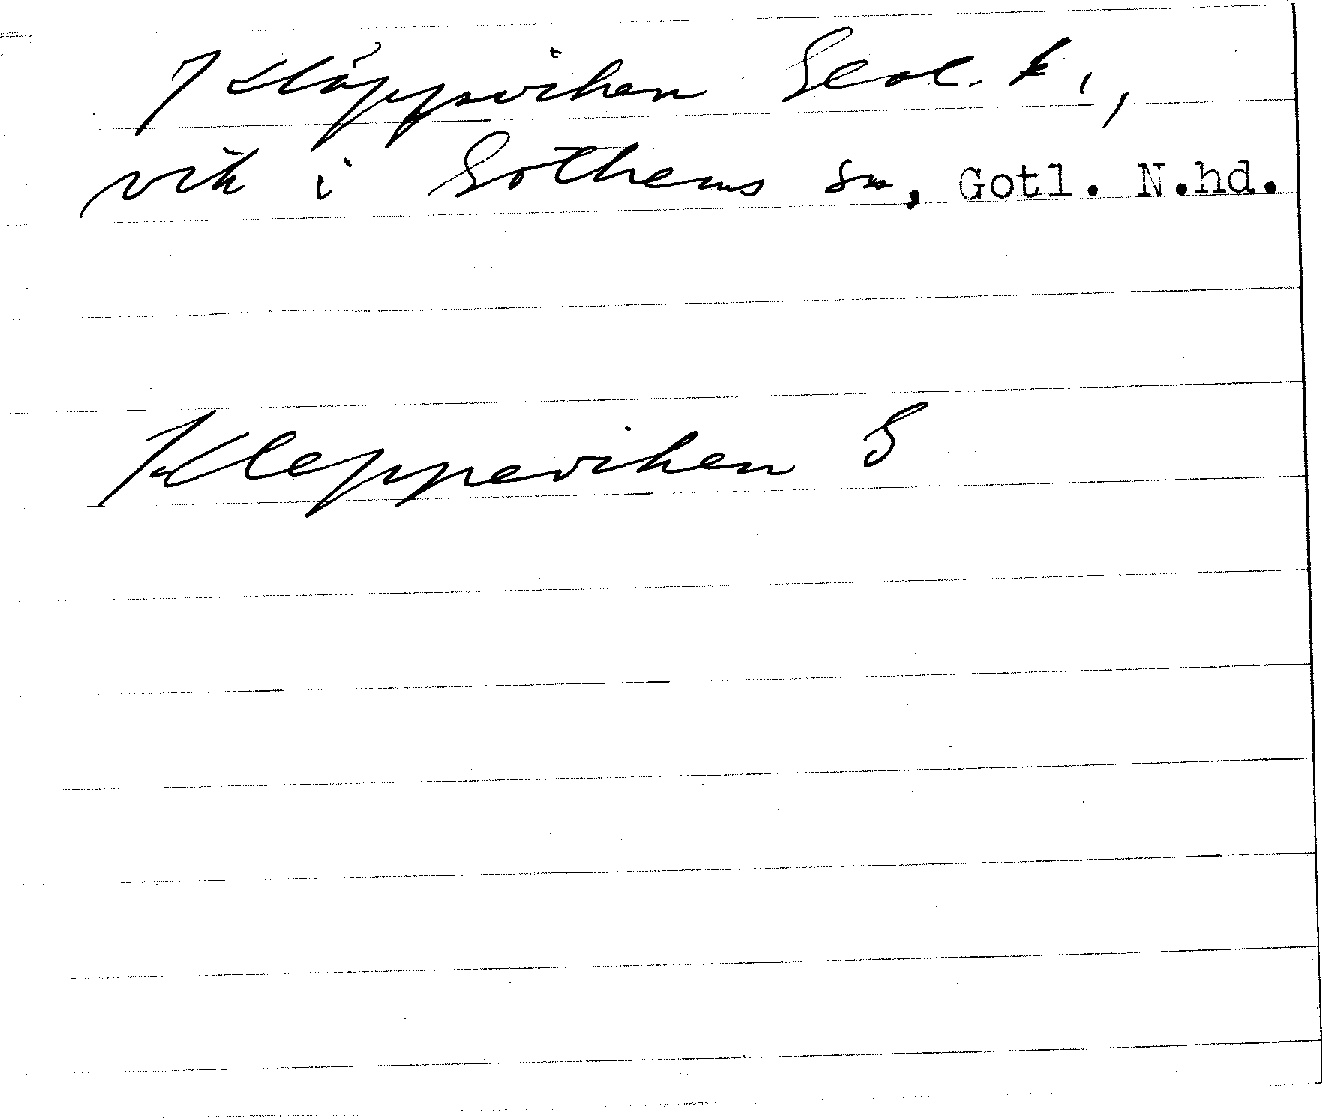 Kläppviken Geol. k.,
vik i Gothems sn, Gotl. N.hd.
Kleppeviken G